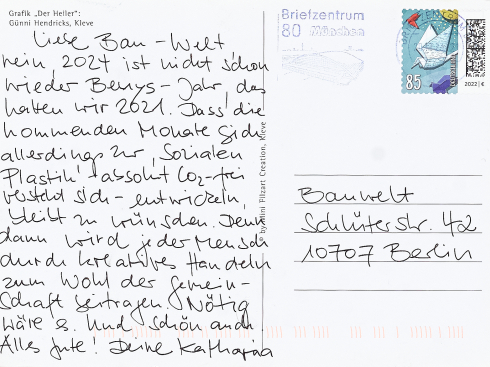 Grafik „Der Heiler“:
Günni Hendricks, Kleve
Liese Bau-Welt,
nein, 2024 ist nicht schon
wieder Beuys-Jahr, das
hatten wir 2021. Dass die
kommenden Monate sich
allerdings zur „Sozialen
Plastik“ - absolut CO2-frei
versteht sich - entwickeln,
bleibt zu wünschen. Denn
dann wird jeder Mensch
durch kreatives Handeln
zum Wohl der Gemein-
schaft beitragen. Nötig
wäre es. Und schön auch.
Alles Gute! Deine Katharina
© by Mini Pilzart Creation, Kleve
Briefzentrum
80 München
85
2022 | €
Bauwelt
Schlüterstr. 42
10707 Berlin